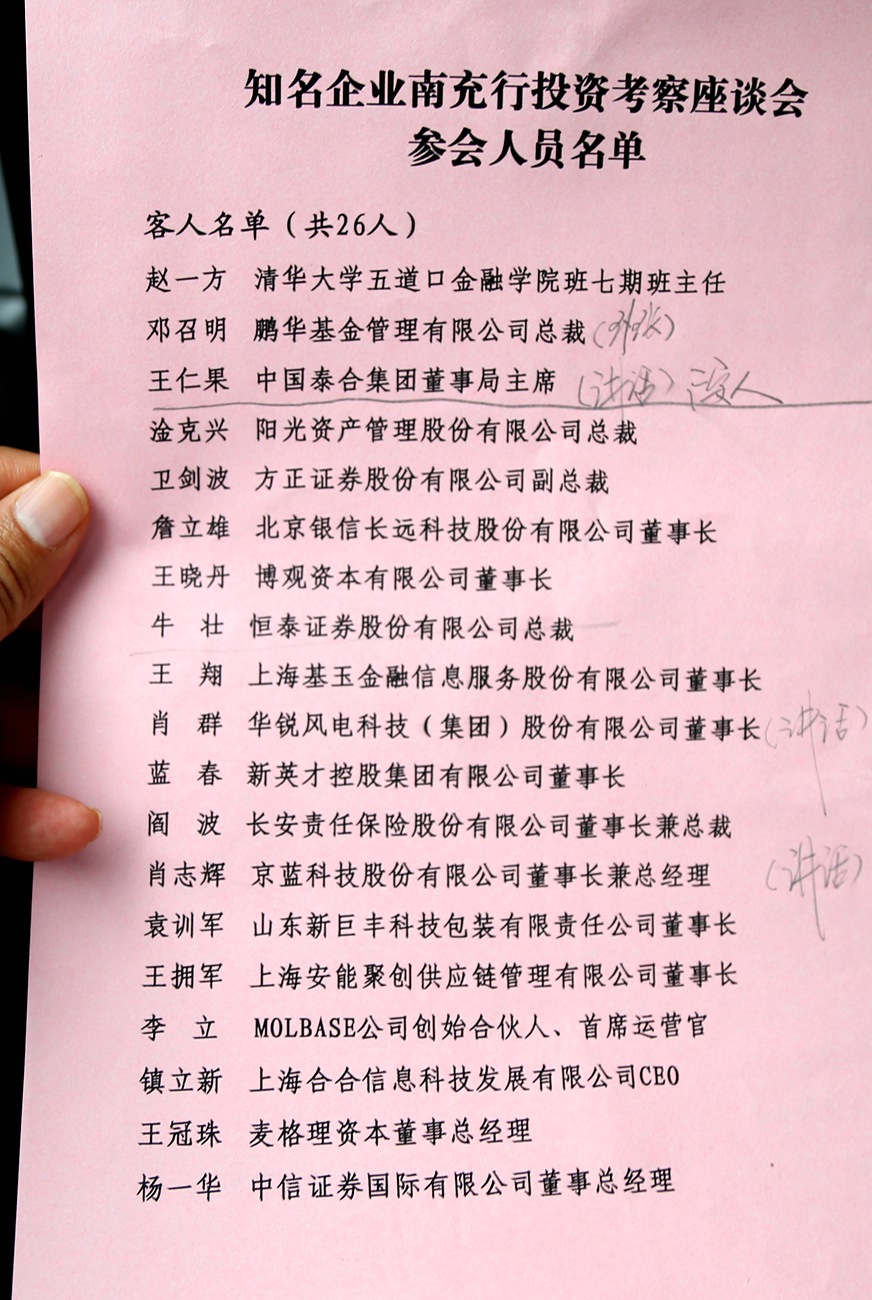 知名企业南充行投资考察座谈会
参会人员名单
客人名单（共26人）
赵一方 清华大学五道口金融学院班七期班主任
邓召明 鹏华基金管理有限公司总裁（班长）
王仁果 中国泰合集团董事局主席（讲话）
淦克兴 阳光资产管理股份有限公司总裁
卫剑波 方正证券股份有限公司副总裁
詹立雄 北京银信长远科技股份有限公司董事长
王晓丹 博观资本有限公司董事长
牛 壮 恒泰证券股份有限公司总裁
王 翔 上海基玉金融信息服务股份有限公司董事长
肖 群 华锐风电科技（集团）股份有限公司董事长（讲话）
蓝 春 新英才控股集团有限公司董事长
阎 波 长安责任保险股份有限公司董事长兼总裁
肖志辉 京蓝科技股份有限公司董事长兼总经理（讲话）
袁训军 山东新巨丰科技包装有限责任公司董事长
王拥军 上海安能聚创供应链管理有限公司董事长
李 立 MOLBASE公司创始合伙人、首席运营官
镇立新 上海合合信息科技发展有限公司CEO
王冠珠 麦格理资本董事总经理
杨一华 中信证券国际有限公司董事总经理